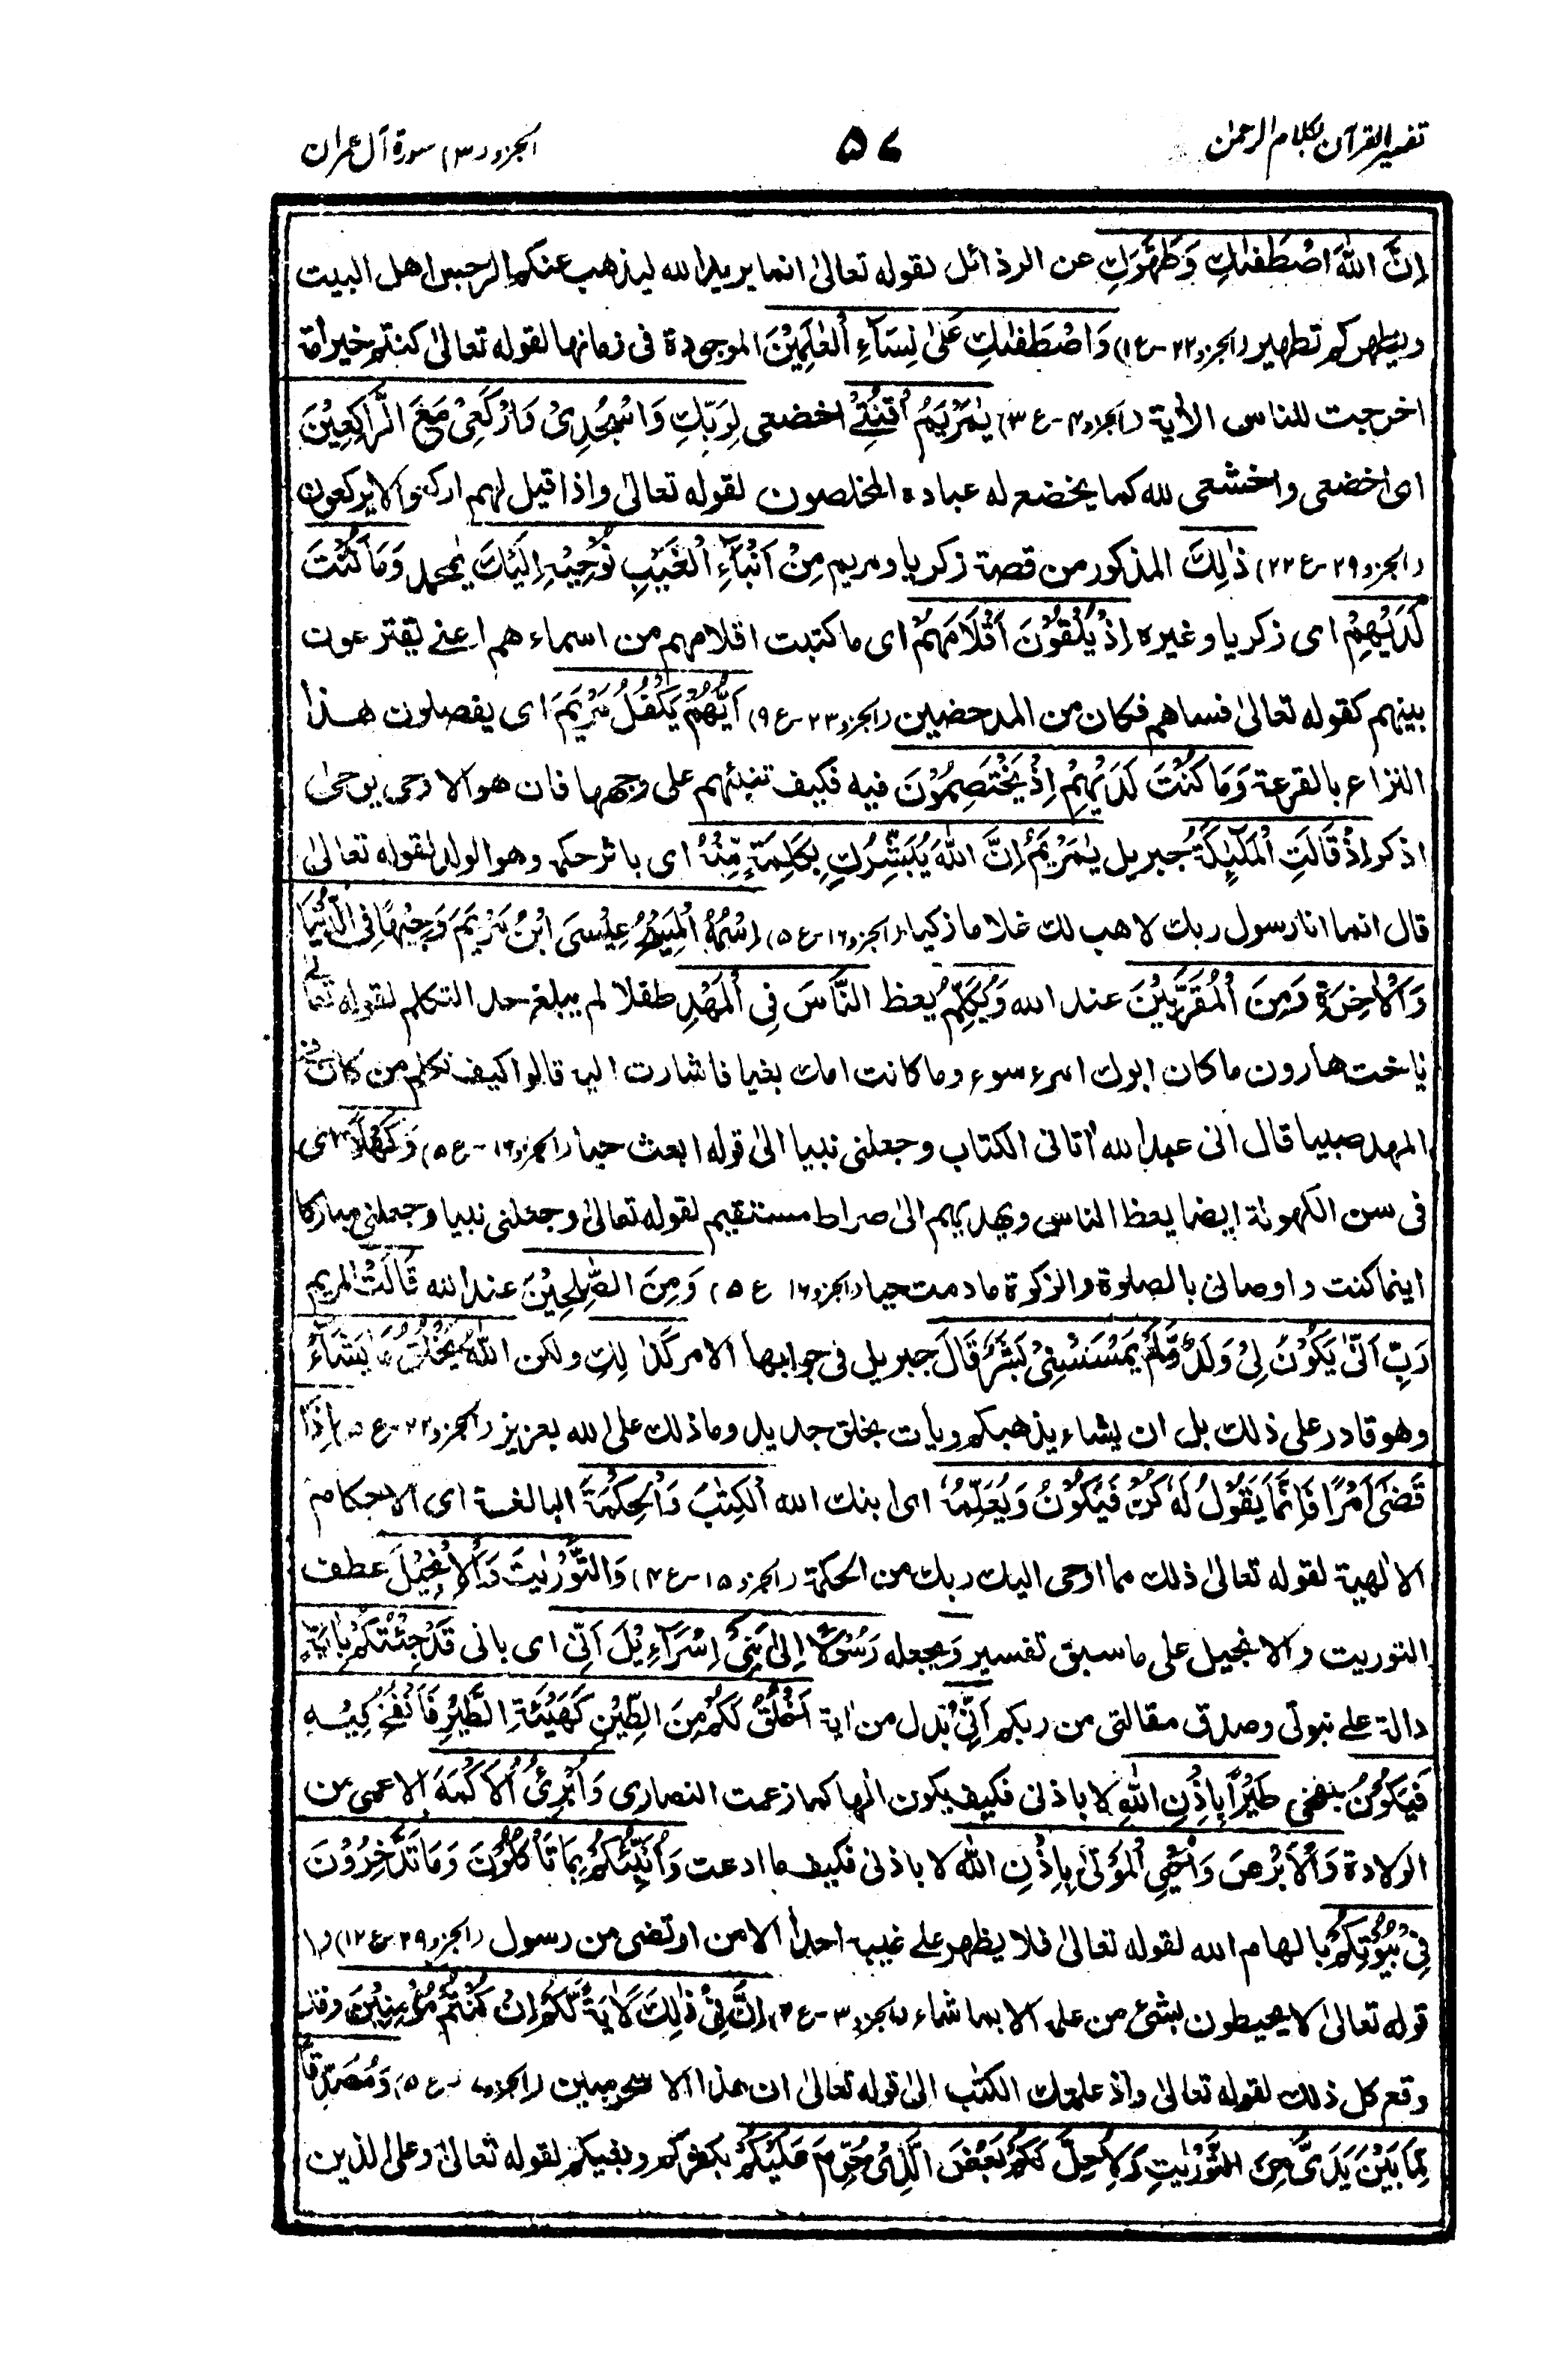 تفسير القرآن بكلام الرحمٰن
۵۷
الجزو (۳) سورة آل عمران
اِنَّ اللّٰهَ اصْطَفٰىكِ وَطَهَّرَكِ عن الرذائل لقوله تعالىٰ انما يريد الله ليذهب عنكم الرجس اهل البيت
ويطهركم تطهير (الجزو۲۲-ع۱) وَاصْطَفٰىكِ عَلٰى نِسَآءِ الْعٰلَمِيْنَ الموجودة فى زمانها لقوله تعالىٰ كنتم خير امة
اخرجت للناس الأية (الجزو۴-ع۳) يٰمَرْيَمُ اقْنُتِيْ اخضعى لِرَبِّكِ وَاسْجُدِىْ وَارْكَعِىْ مَعَ الرَّاكِعِيْنَ
اى اخضعى واخشعى لله كما يخضع له عباده المخلصون لقوله تعالىٰ واذا قيل لهم اركعوا لا يركعون
(الجزو۲۹-ع۲۲) ذٰلِكَ المذكور من قصة زكريا ومريم مِنْ اَنْۢبَآءِ الْغَيْبِ نُوْحِيْهِ اِلَيْكَ يٰمحمد وَمَا كُنْتَ
لَدَيْهِمْ اى زكريا وغيره اِذْ يُلْقُوْنَ اَقْلَامَهُمْ اى ما كتبت اقلامهم من اسماءهم اعنے يقترعون
بينهم كقوله تعالىٰ فساهم فكان من المدحضين (الجزو۲۳-ع۹) اَيُّهُمْ يَكْفُلُ مَرْيَمَ اى يفصلون هذا
النزاع بالقرعة وَمَا كُنْتَ لَدَيْهِمْ اِذْ يَخْتَصِمُوْنَ فيه فكيف تنبئهم على وجهها فان هو الا وحى يوحىٰ
اذكر اِذْ قَالَتِ الْمَلٰٓئِكَةُ جبريل يٰمَرْيَمُ اِنَّ اللّٰهَ يُبَشِّرُكِ بِكَلِمَةٍ مِّنْهُ اى باثر حكمه وهو الولد لقوله تعالىٰ
قال انما انا رسول ربك لاهب لك غلاما زكيا (الجزو۱۶-ع۵) اسْمُهُ الْمَسِيْحُ عِيْسَى ابْنُ مَرْيَمَ وَجِيْهًا فِى الدُّنْيَا
وَالْاٰخِرَةِ وَمِنَ الْمُقَرَّبِيْنَ عند الله وَيُكَلِّمُ يعظ النَّاسَ فِى الْمَهْدِ طفلا لم يبلغ حد التكلم لقوله تعالے
ياخت هارون ما كان ابوك امرء سوء وما كانت امك بغيا فاشارت اليه قالوا كيف نكلم من كان فى
المهد صبيا قال انى عبد الله أتانى الكتاب وجعلنى نبيا الىٰ قوله ابعث حيا (الجزو۱۶-ع۵) وَكَهْلًا اى
فى سن الكهولة ايضا يعظ الناس ويهديهم الىٰ صراط مستقيم لقوله تعالىٰ وجعلنى نبيا وجعلنى مباركا
اينما كنت واوصانى بالصلوة والزكوة ما دمت حيا (الجزو۱۶ ع۵) وَمِنَ الصّٰلِحِيْنَ عند الله قَالَتْ المريم
رَبِّ اَنّٰى يَكُوْنُ لِىْ وَلَدٌ وَّلَمْ يَمْسَسْنِىْ بَشَرٌ قَالَ جبريل فى جوابها الامر كَذٰلِكِ ولكن اللّٰهُ يَخْلُقُ مَا يَشَآءُ
وهو قادر على ذلك بل ان يشاء يذهبكم ويأت بخلق جديد وما ذلك على الله بعزيز (الجزو۲۲-ع) اِذَا
قَضٰٓى اَمْرًا فَاِنَّمَا يَقُوْلُ لَهٗ كُنْ فَيَكُوْنُ وَيُعَلِّمُهُ اى ابنك الله الْكِتٰبَ وَالْحِكْمَةَ البالغة اى الاحكام
الالٰهية لقوله تعالىٰ ذلك مما اوحى اليك ربك من الحكمة (الجزو۱۵-ع۴) وَالتَّوْرٰىةَ وَالْاِنْجِيْلَ عطف
التوريت والانجيل على ما سبق تفسير وَيجعله رَسُوْلًا اِلٰى بَنِىْ اِسْرَآءِيْلَ اَنِّىْ اى بانى قَدْ جِئْتُكُمْ بِاٰيَةٍ
دالة علے نبوتى وصدق مقالتى من ربكم اَنِّىْ بدل من اٰية اَخْلُقُ لَكُمْ مِنَ الطِّيْنِ كَهَيْئَةِ الطَّيْرِ فَاَنْفُخُ فِيْهِ
فَيَكُوْنُ بنفخى طَيْرًا بِاِذْنِ اللّٰهِ لا باذنى فكيف يكون الٰها كما زعمت النصارى وَاُبْرِئُ الْاَكْمَهَ الاعمى من
الولادة وَالْاَبْرَصَ وَاُحْيِ الْمَوْتٰى بِاِذْنِ اللّٰهِ لا باذنى فكيف ما ادعت وَاُنَبِّئُكُمْ بِمَا تَاْكُلُوْنَ وَمَا تَدَّخِرُوْنَ
فِىْ بُيُوْتِكُمْ بالهام الله لقوله تعالىٰ فلا يظهر علے غيبه احدا الا من ارتضى من رسول (الجزو۲۹-ع۱۲)
قوله تعالىٰ لا يحيطون بشئ من علمه الا بما شاء (الجزو۳-ع۲) اِنَّ فِىْ ذٰلِكَ لَاٰيَةً لَّكُمْ اِنْ كُنْتُمْ مُّؤْمِنِيْنَ وقد
وقع كل ذلك لقوله تعالىٰ واذ علمتك الكتٰب الىٰ قوله تعالىٰ ان هذا الا سحر مبين (الجزو۷-ع۵) وَمُصَدِّقًا
لِّمَا بَيْنَ يَدَىَّ مِنَ التَّوْرٰىةِ وَلِاُحِلَّ لَكُمْ بَعْضَ الَّذِىْ حُرِّمَ عَلَيْكُمْ بكفركم وبغيكم لقوله تعالىٰ وعلى الذين